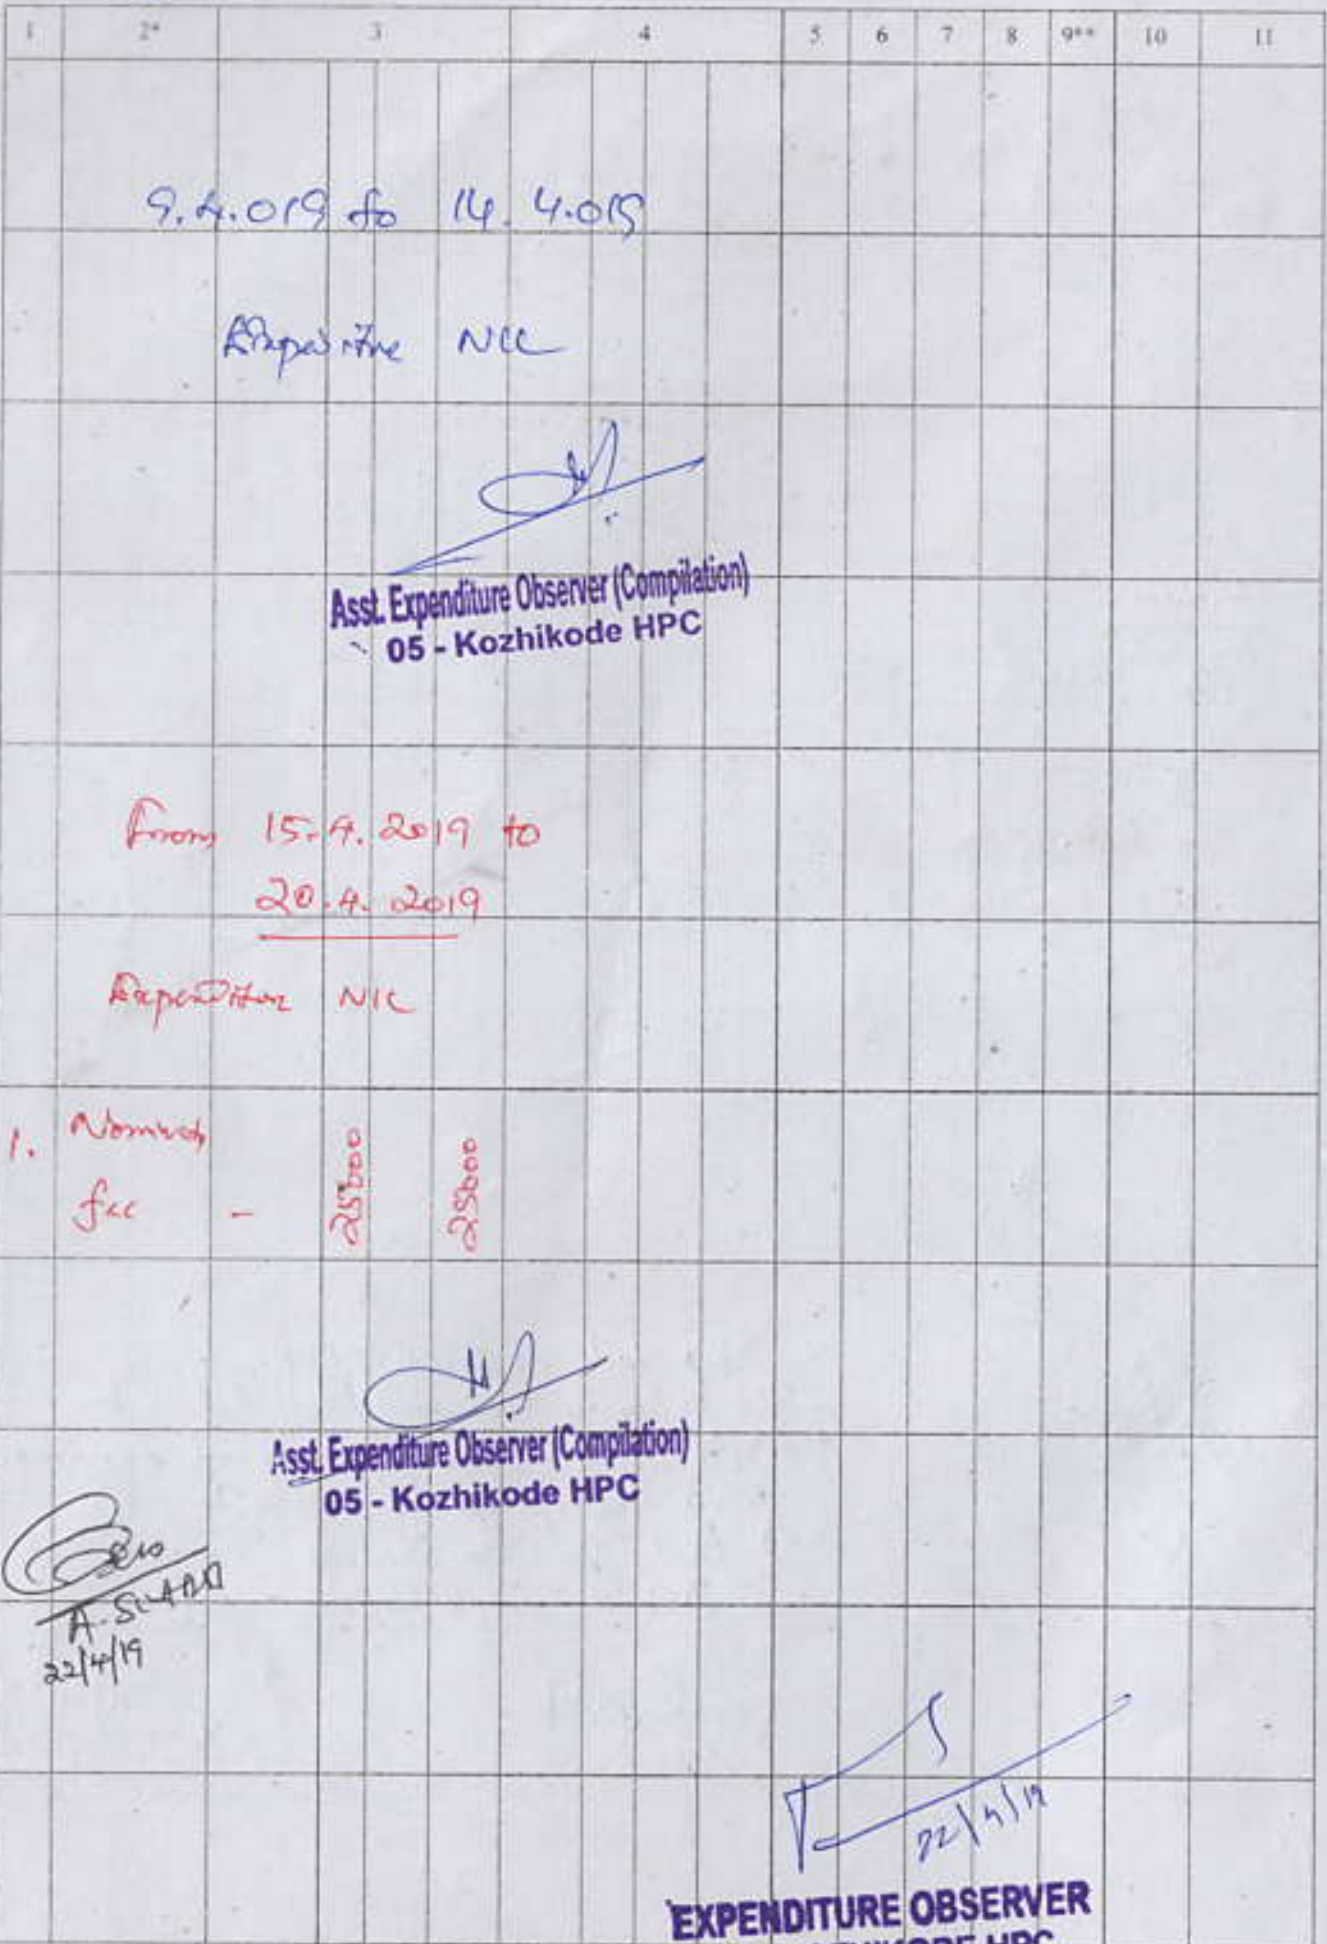 1 2* 3 4 5 6 7 8 9** 10 11
9.4.019 to 14.4.019
NIL
Asst. Expenditure Observer (Compilation)
05 - Kozhikode HPC
From 15.4.2019 to
20.4.2019
Expenditure NIL
1. 25000 25000
fee -
Asst. Expenditure Observer (Compilation)
05 - Kozhikode HPC
A.
22/4/19
22/4/19
EXPENDITURE OBSERVER
HPC